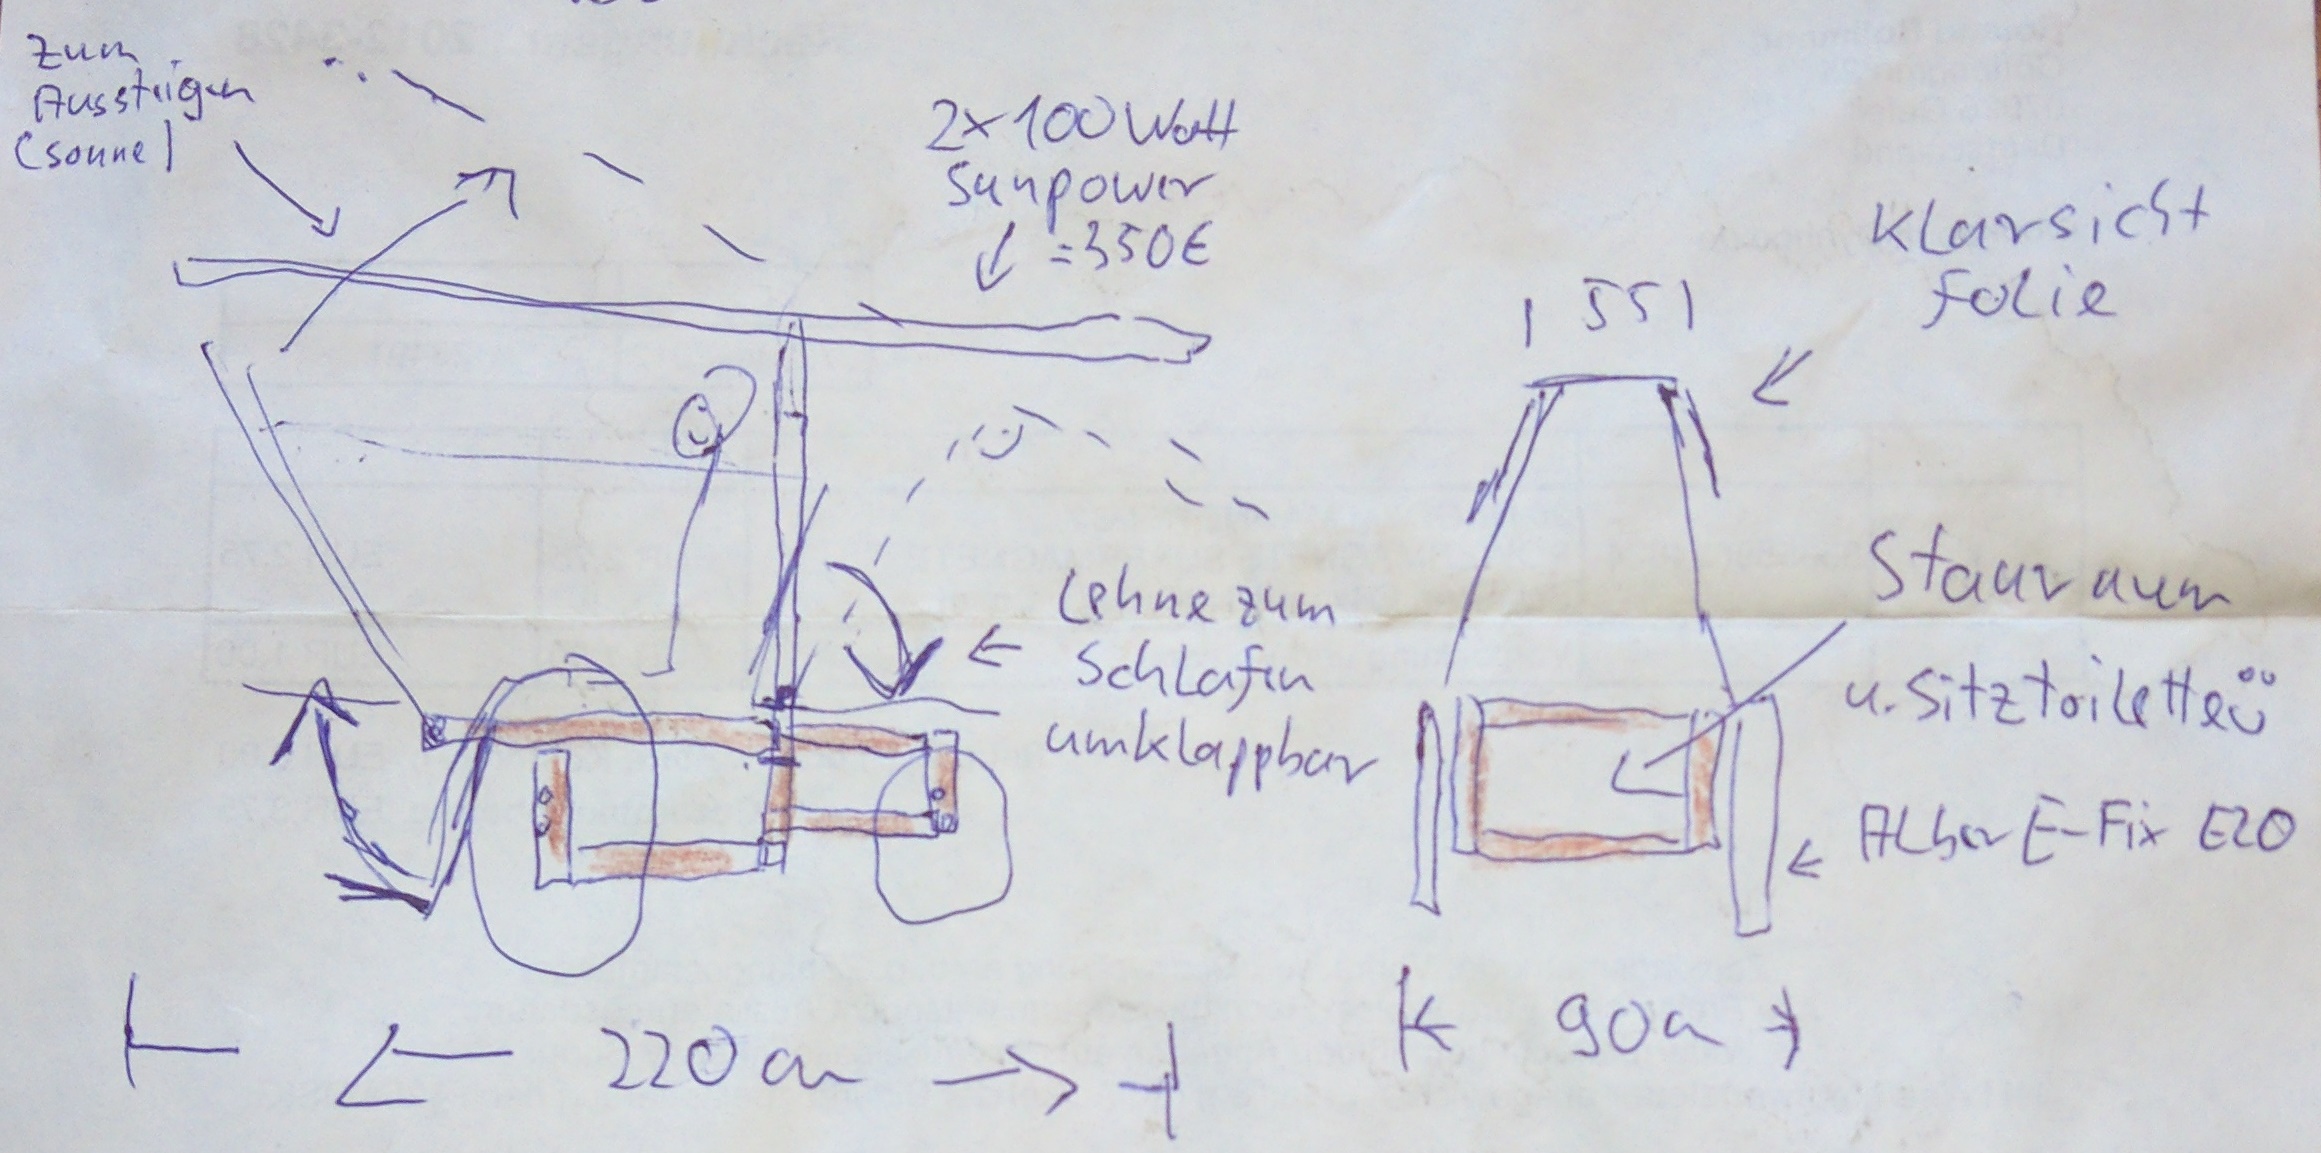 Zum
Aussteigen
(Sonne)
2x100Watt
Sunpower
=350€
Klarsicht
Folie
55
Lehne zum
Schlafen
umklappbar
Stauraum
u. Sitztoilette
Alber E-Fix E20
220cm
90cm